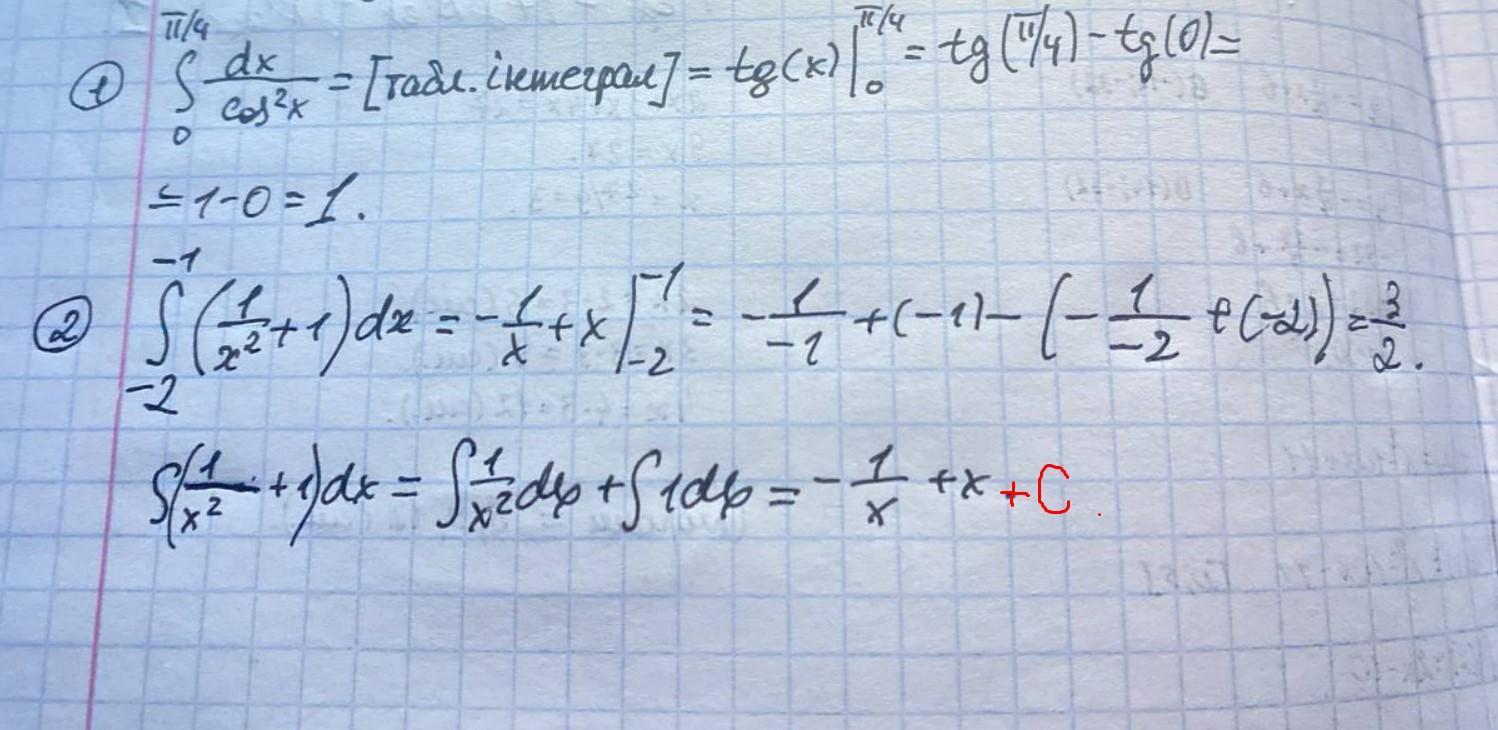 ① ∫_0^{π/4} dx/cos²x = [табл. інтеграл] = tg(x)|_0^{π/4} = tg(π/4) - tg(0) =
= 1-0 = 1.
② ∫_{-2}^{-1} (1/x² + 1) dx = -1/x + x |_{-2}^{-1} = -1/-1 + (-1) - (-1/-2 + (-2)) = 3/2.
∫(1/x² + 1)dx = ∫ 1/x² dx + ∫ 1dx = -1/x + x + C.